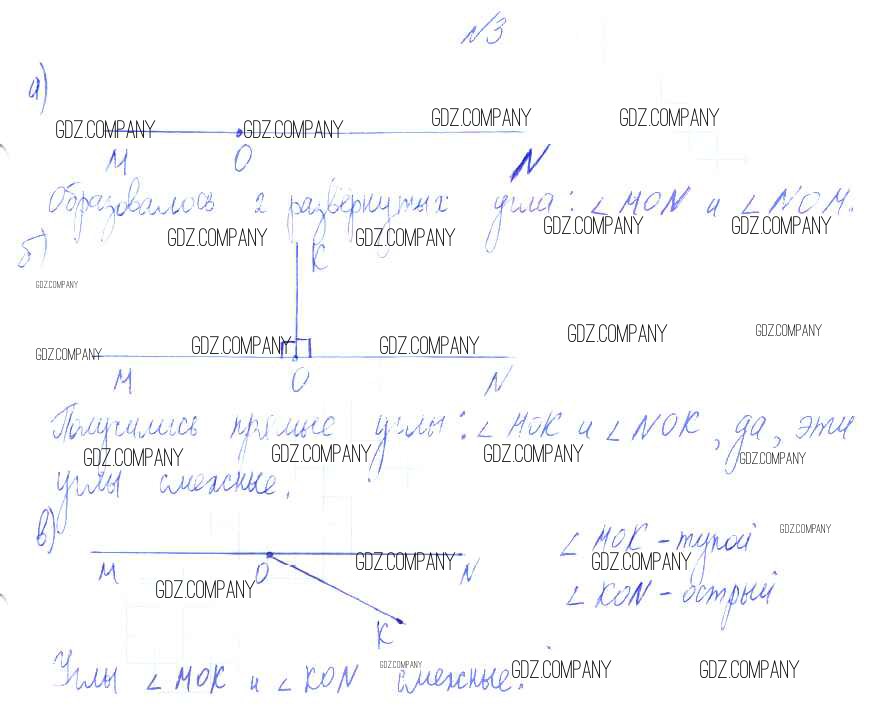 N3
а)
GDZ.COMPANY GDZ.COMPANY GDZ.COMPANY GDZ.COMPANY
М О N
Образовалось 2 развёрнутых угла: ∠MON и ∠NOM.
GDZ.COMPANY GDZ.COMPANY GDZ.COMPANY GDZ.COMPANY
б) К
GDZ.COMPANY
GDZ.COMPANY GDZ.COMPANY GDZ.COMPANY GDZ.COMPANY GDZ.COMPANY
М О N
Получились прямые углы: ∠MOK и ∠NOK, да, эти
GDZ.COMPANY GDZ.COMPANY GDZ.COMPANY GDZ.COMPANY
углы смежные.
в) ∠MOK - тупой
GDZ.COMPANY
М О N
GDZ.COMPANY GDZ.COMPANY GDZ.COMPANY
∠KON - острый
К
Углы ∠MOK и ∠KON смежные.
GDZ.COMPANY GDZ.COMPANY GDZ.COMPANY